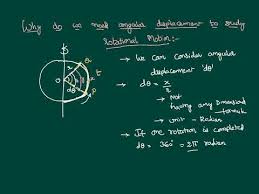 Why do we need angular displacement to study
Rotational Motion:-
→ We can consider angular
displacement 'dθ'
→ dθ = x/r
→ Not having any Dimensional formula
→ Unit - Radian
→ If one rotation is completed
dθ = 360° = 2π radian
r
dθ
x
P